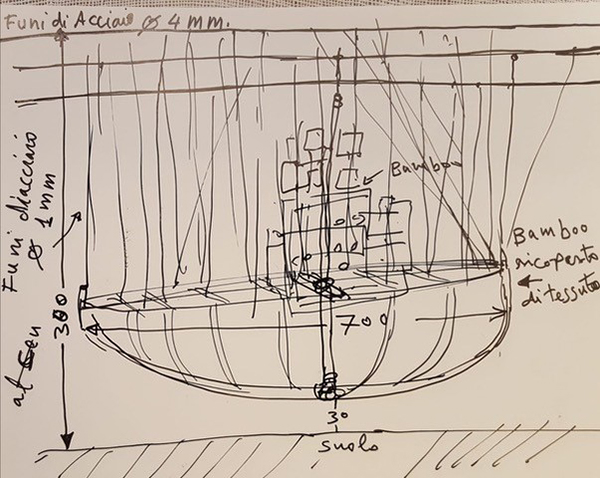 Funi di Acciaio ø 4 mm.
Bamboo
Funi di acciaio
ø 1 mm
300
Bamboo
ricoperto
di tessuto
700
30
suolo